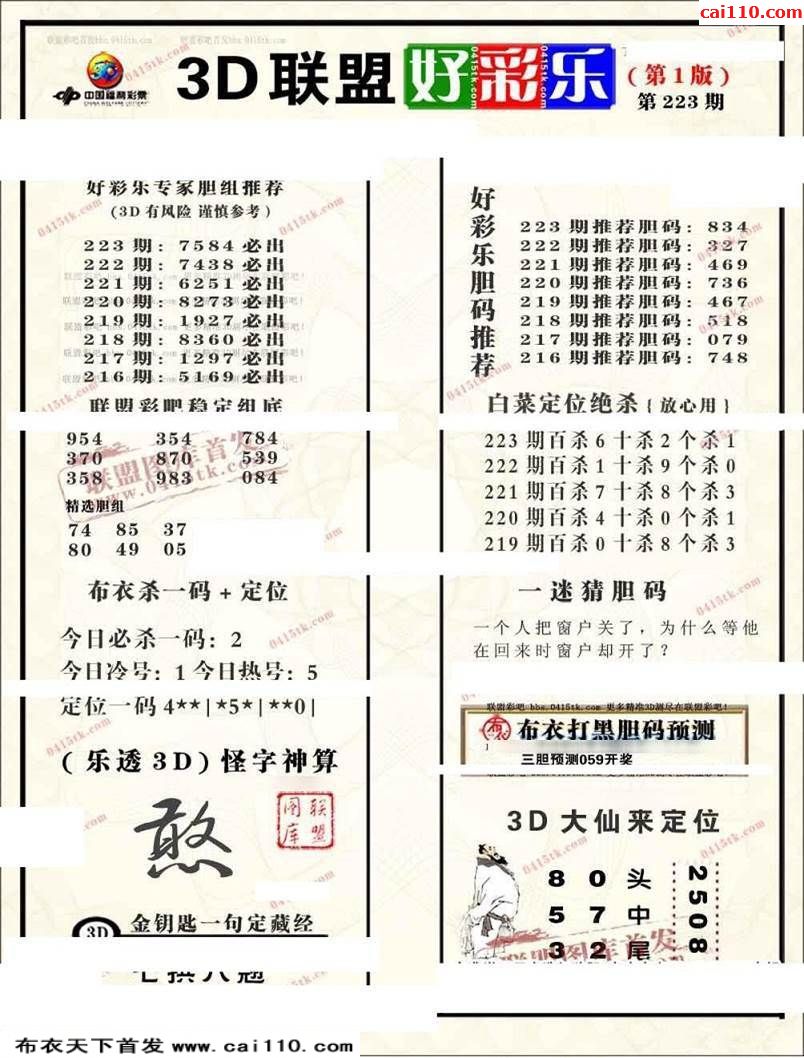 cai110.com
3D联盟好彩乐
(第1版)
第223期
中国福利彩票
CHINA WELFARE LOTTERY
好彩乐专家胆组推荐
(3D有风险 谨慎参考)
223期:7584必出
222期:7438必出
221期:6251必出
220期:8273必出
219期:1927必出
218期:8360必出
217期:1297必出
216期:5169必出
联盟彩吧稳定组底
954 354 784
370 870 539
358 983 084
精选胆组
74 85 37
80 49 05
联盟图库首发
www.0415tk.com
布衣杀一码+定位
今日必杀一码:2
今日冷号:1 今日热号:5
定位一码 4**|*5*|**0|
(乐透3D)怪字神算
憨
联盟图库
3D
金钥匙一句定藏经
好彩乐胆码推荐
223期推荐胆码:834
222期推荐胆码:327
221期推荐胆码:469
220期推荐胆码:736
219期推荐胆码:467
218期推荐胆码:518
217期推荐胆码:079
216期推荐胆码:748
白菜定位绝杀{放心用}
223期百杀6十杀2个杀1
222期百杀1十杀9个杀0
221期百杀7十杀8个杀3
220期百杀4十杀0个杀1
219期百杀0十杀8个杀3
一迷猜胆码
一个人把窗户关了,为什么等他
在回来时窗户却开了?
联盟彩吧!bbs.0415tk.com 更多精准3D测尽在联盟彩吧!
布衣打黑胆码预测
三胆预测059开奖
3D大仙来定位
8 0 头
5 7 中
3 2 尾
2508
联盟图库首发
0415tk.com
布衣天下首发 www.cai110.com